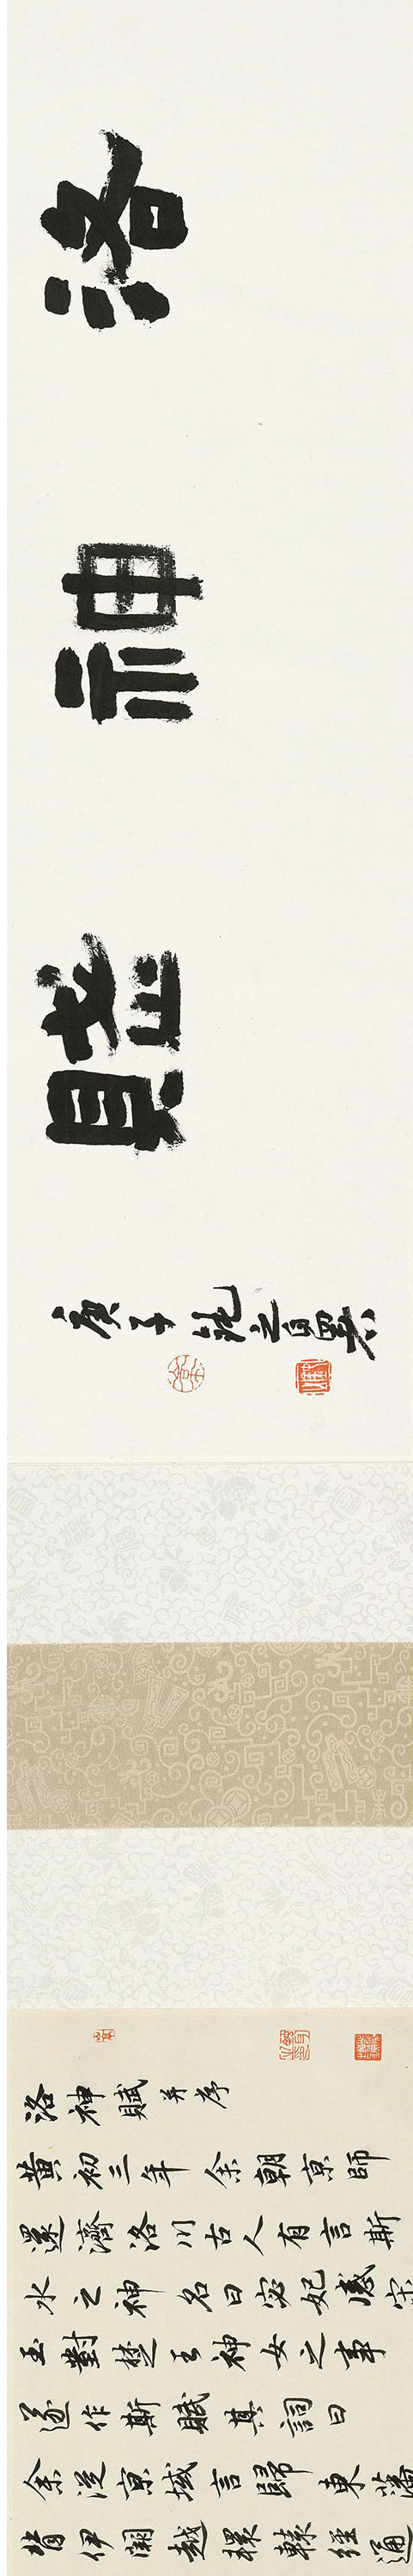 洛神賦
庚子之自署
洛神賦并序
黃初三年余朝京師
還濟洛川古人有言斯
水之神名曰宓妃感宋
玉對楚王神女之事
遂作斯賦其詞曰
余從京域言歸東藩
背伊闕越轘轅經通